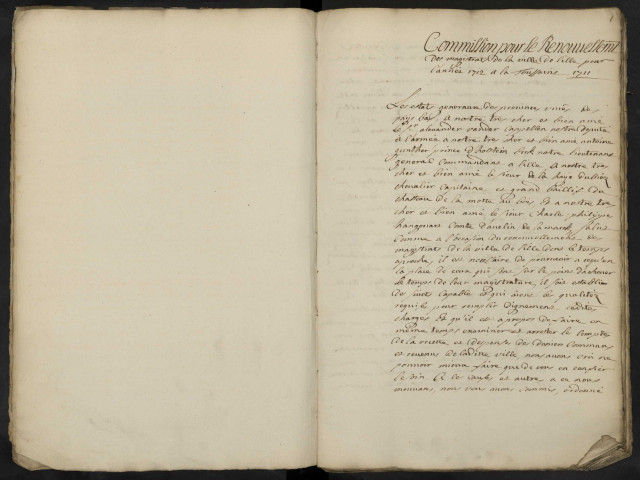 1
Commission pour le Renouvellemt
des magistrats de la ville de Lille pour
l'année 1712 a la Toussains 1711
Les estat generaux des province unies des
pays bas, A nostre tre cher et bien amé
le Sr alexander vander Capellen nostre deputé
a l'armée a nostre tre cher et bien amé antoine
gunther prince d'holstein beck notre lieutenant
general commandant a lille A nostre tre
cher et bien amé le sieur de la
chevalier capitaine et grand baillif du
chasteau de la motte au bois, Et a nostre tre
cher et bien amé le sieur Charle philippe
comte d'avelin de la marcq Salut
Comme a l'occasion du renouvellement du
magistrat de la ville de lille dont le temps
aproche, il est necessaire de pourveoir a ce qu'en
la place de ceux qui sont sur le point d'achever
le temps de leur magistrature, il soit establis
de sujets capable et qui aient les qualitez
requise pour remplir dignement lesdite
charges Et qu'il est a propos de faire en
mesme temps examiner et arrester le compte
de la recette et depense des deniers communs
et revenus de ladite ville, nous avons creu ne
pouvoir mieux faire que de vous en confier
le soin A ce sujet et autre a ce nous
mouvans, nous vous avons commis, ordonné